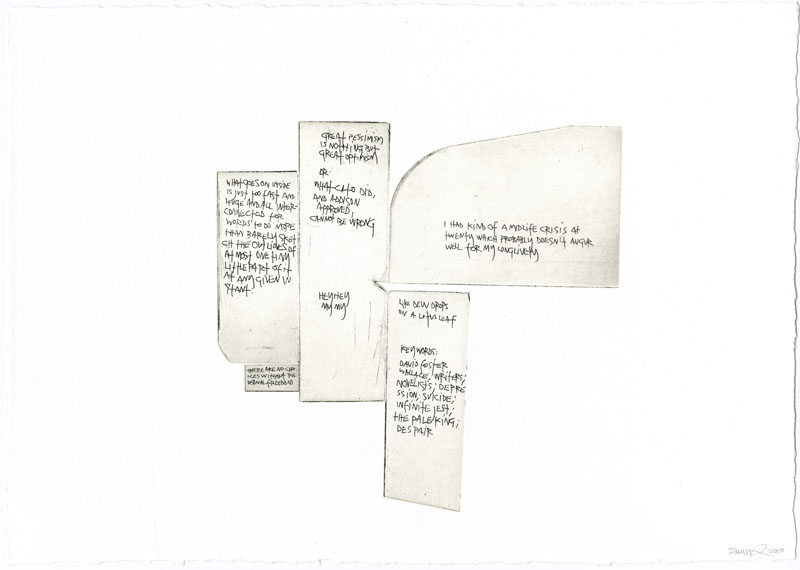 WHAT GOES ON INSIDE
IS JUST TOO FAST AND
HUGE AND ALL INTER-
CONNECTED FOR
WORDS TO DO MORE
THAN BARELY SKET
CH THE OUTLINES OF
AT MOST ONE TINY
LITTLE PART OF IT
AT ANY GIVEN IN
STANT.
THERE ARE NO CHO
ICES WITHOUT PE
RSONAL FREEDOM
GREAT PESSIMISM
IS NOTHING BUT
GREAT OPTIMISM
OR:
WHAT CATO DID,
AND ADDISON
APPROVED,
CANNOT BE WRONG
HEY HEY
MY MY
I HAD KIND OF A MIDLIFE CRISIS AT
TWENTY WHICH PROBABLY DOESN'T AUGUR
WELL FOR MY LONGEVITY
LIKE DEW DROPS
ON A LOTUS LEAF
KEYWORDS:
DAVID FOSTER
WALLACE; WRITERS;
NOVELISTS; DEPRE
SSION; SUICIDE;
INFINITE JEST;
THE PALE KING;
DESPAIR
2010